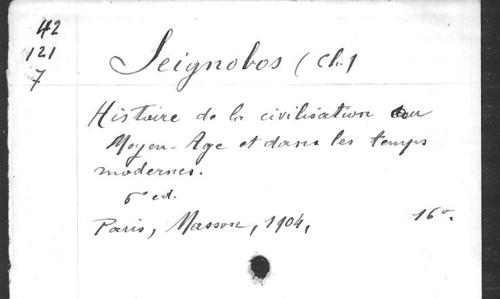 42
121
7
Seignobos (Ch.)
Histoire de la civilisation au
Moyen-Age et dans les temps
modernes.
6e ed.
Paris, Masson, 1904, 16º.